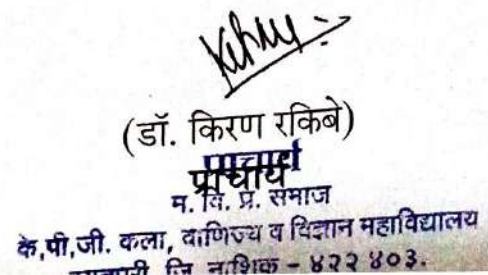 (डॉ. किरण रकिबे)
प्राचार्य
म. वि. प्र. समाज
के.पी.जी. कला, वाणिज्य व विज्ञान महाविद्यालय
जि. नाशिक - ४२२ ४०३.